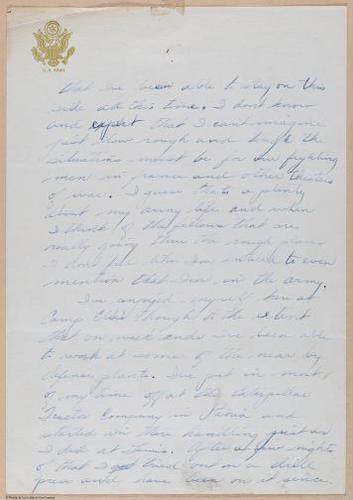 U.S. ARMY
that I've been able to stay on this
side all this time. I don't know
and expect that I can't imagine
just how rough and tough the
situations must be for our fighting
men in france and other theaters
of war. I guess thats a plenty
about my army life and when
I think of the fellows that are
really going thru the rough places
I don't feel like I'm entitled to even
mention that I'm in the army.
I've enjoyed myself here at
Camp Ellis though to the extent
that on week ends I've been able
to work at some of the near by
defense plants. I've put in most
of my time off at the Caterpillar
Tractor Company in Peoria and
started in there handling just as
I did at . After a few nights
of that I got tried out on a drill
press and have been on it since.